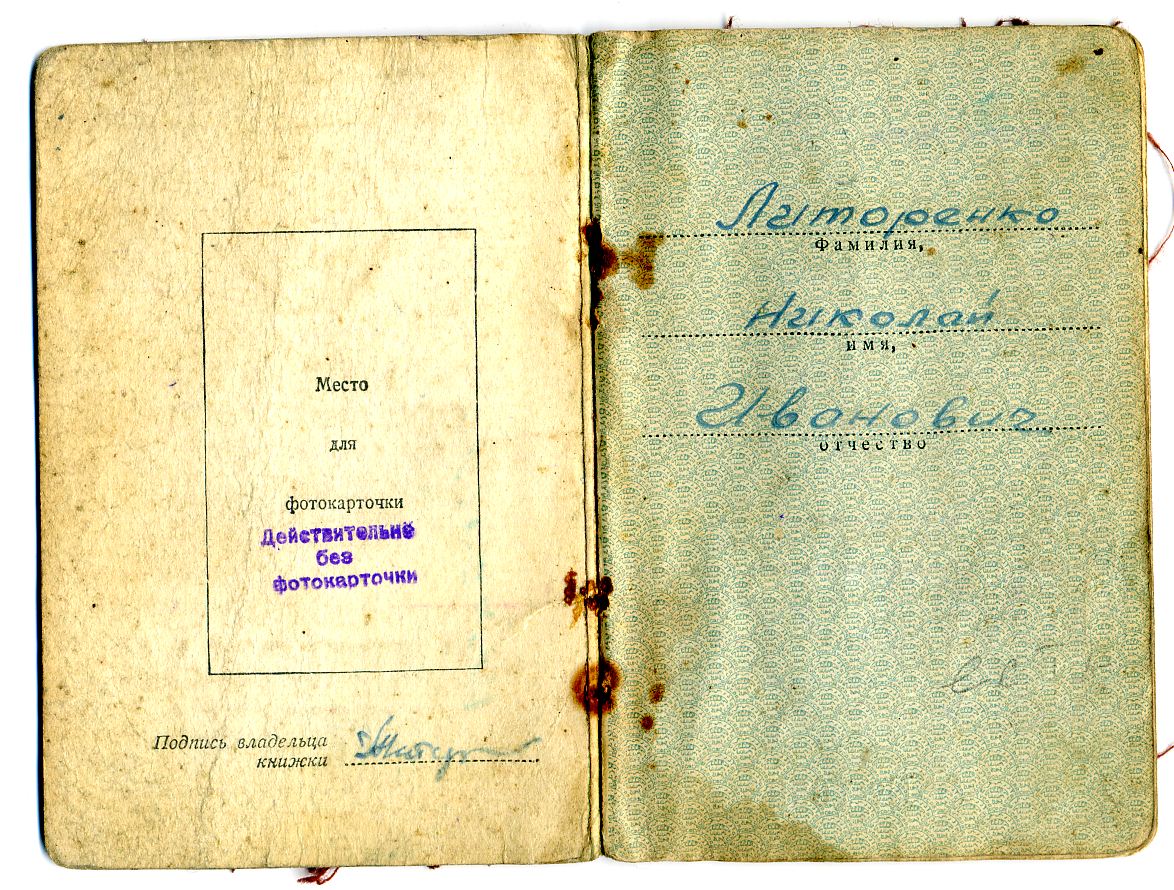 Место
для
фотокарточки
Действительно
без
фотокарточки
Подпись владельца
книжки
Литоренко
Фамилия,
Николай
имя,
Иванович
отчество